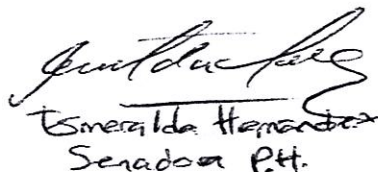 Esmeralda Hernandez
Senadora P.H.